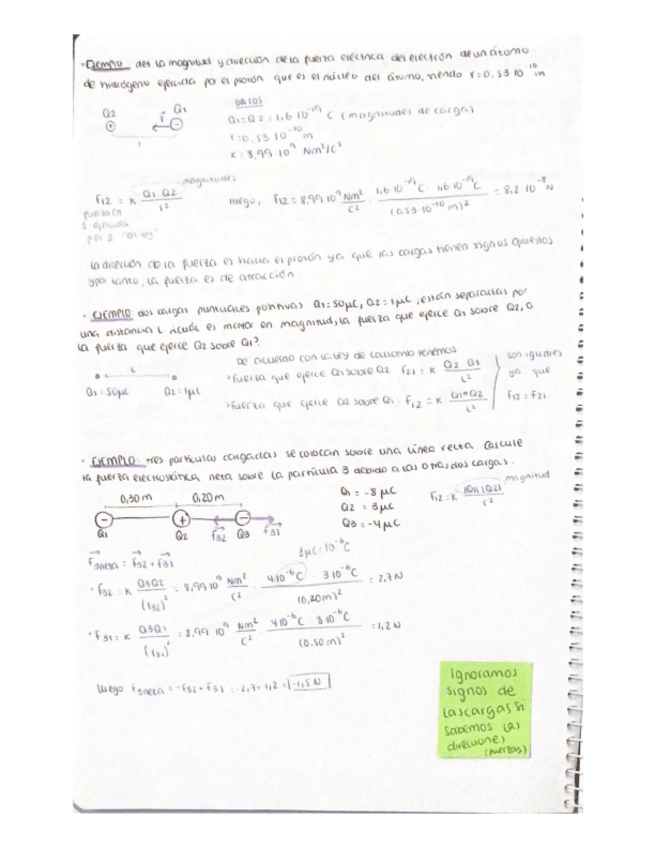 · Ejemplo det la magnitud y dirección de la fuerza eléctrica del electrón de un átomo
de hidrógeno ejercida por el protón que es el núcleo del átomo, siendo r = 0,53 10⁻¹⁰ m
DATOS
Q2 Q1
Q1 = Q2 = 1,6 10⁻¹⁹ C (magnitudes de carga)
r = 0,53 10⁻¹⁰ m
K = 8,99 · 10⁹ Nm²/C²
magnitudes
F12 = K Q1 Q2 / r²
luego, F12 = 8,99 10⁹ Nm²/C² · 1,6 10⁻¹⁹ C · 1,6 10⁻¹⁹ C / (0,53 10⁻¹⁰ m)² = 8,2 10⁻⁸ N
fuerza en
1 ejercida
por 2
La dirección de la fuerza es hacia el protón ya que las cargas tienen signos opuestos
y por tanto, la fuerza es de atracción
· EJEMPLO dos cargas puntuales positivas Q1 = 50μC, Q2 = 1μC, están separadas por
una distancia L ¿cuál es mayor en magnitud, la fuerza que ejerce Q1 sobre Q2, o
la fuerza que ejerce Q2 sobre Q1?
De acuerdo con la ley de Coulomb tenemos
L
Q1 = 50μC Q2 = 1μC
· Fuerza que ejerce Q1 sobre Q2: F21 = K Q2 Q1 / L²
· Fuerza que ejerce Q2 sobre Q1: F12 = K Q1 · Q2 / L²
son iguales
ya que
F12 = F21
· EJEMPLO: tres partículas cargadas se colocan sobre una línea recta. Calcule
la fuerza electrostática neta sobre la partícula 3 debido a las otras dos cargas.
0,30 m 0,20 m
Q1 Q2 F32 Q3 F31
Q1 = -8 μC
Q2 = 3 μC
Q3 = -4 μC
magnitud
F12 = K |Q1| |Q2| / r²
1μC = 10⁻⁶ C
F3neta = F32 + F31
· F32 = K Q3Q2 / (r32)² = 8,99 10⁹ Nm²/C² · 4 10⁻⁶ C · 3 10⁻⁶ C / (0,20 m)² = 2,7 N
· F31 = K Q3Q1 / (r31)² = 8,99 10⁹ Nm²/C² · 4 10⁻⁶ C · 8 10⁻⁶ C / (0,50 m)² = 1,2 N
luego F3neta = -F32 + F31 = -2,7 + 1,2 = -1,5 N
Ignoramos
signos de
las cargas si
sabemos las
direcciones
(fuerzas)